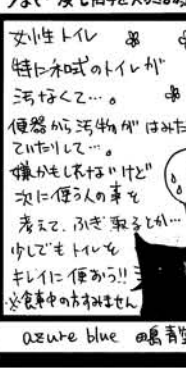 女性トイレ
特に和式のトイレが
汚なくて…。
便器から汚物がはみた
ていたりして…。
嫌かもしれないけど
次に使う人の事を
考えて、ふき取るとか…
少しでもトイレを
キレイに使おう!!
※食事中の方すみません
azure blue 嶋青空